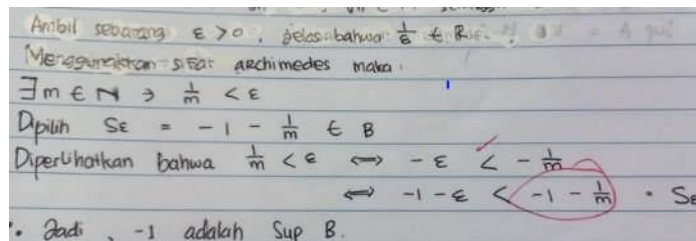 Ambil sebarang ε > 0, jelas bahwa 1/ε ∈ R
Menggunakan sifat archimedes maka.
∃m ∈ N ∋ 1/m < ε
Dipilih Sε = -1 - 1/m ∈ B
Diperlihatkan bahwa 1/m < ε ⟺ -ε < -1/m
⟺ -1-ε < -1 - 1/m · Sε
∴ Jadi, -1 adalah Sup B.